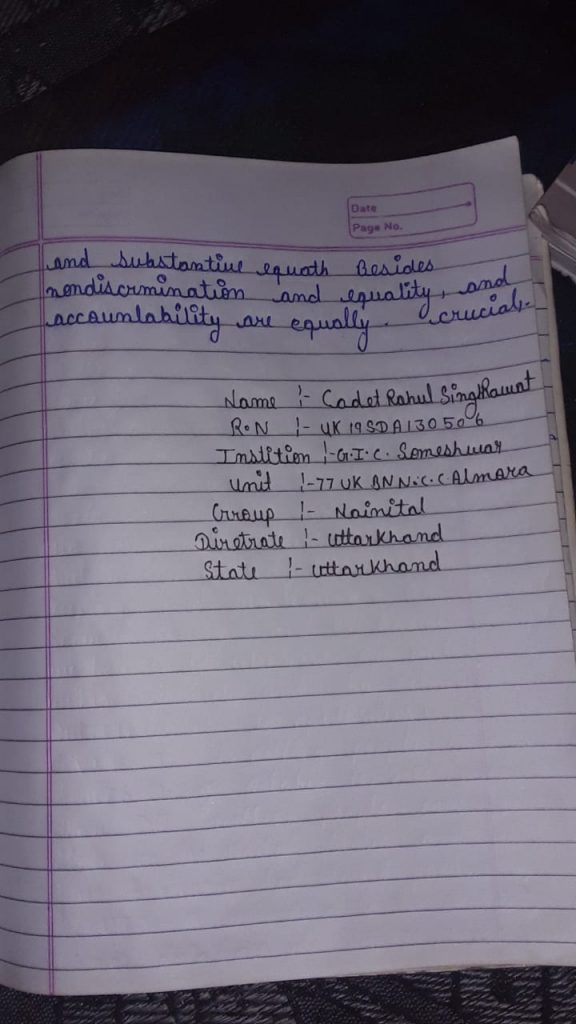 Date
Page No.
and substantive equath Besides
nondiscrmination and equality, and
accountability are equally. crucial.
Name :- Cadet Rahul Singh Rawat
R.N :- UK19SDA130506
Instition :- G.I.C. Someshwar
Unit :- 77 UK BN N.C.C Almara
Group :- Nainital
Diretrate :- Uttarkhand
State :- Uttarkhand